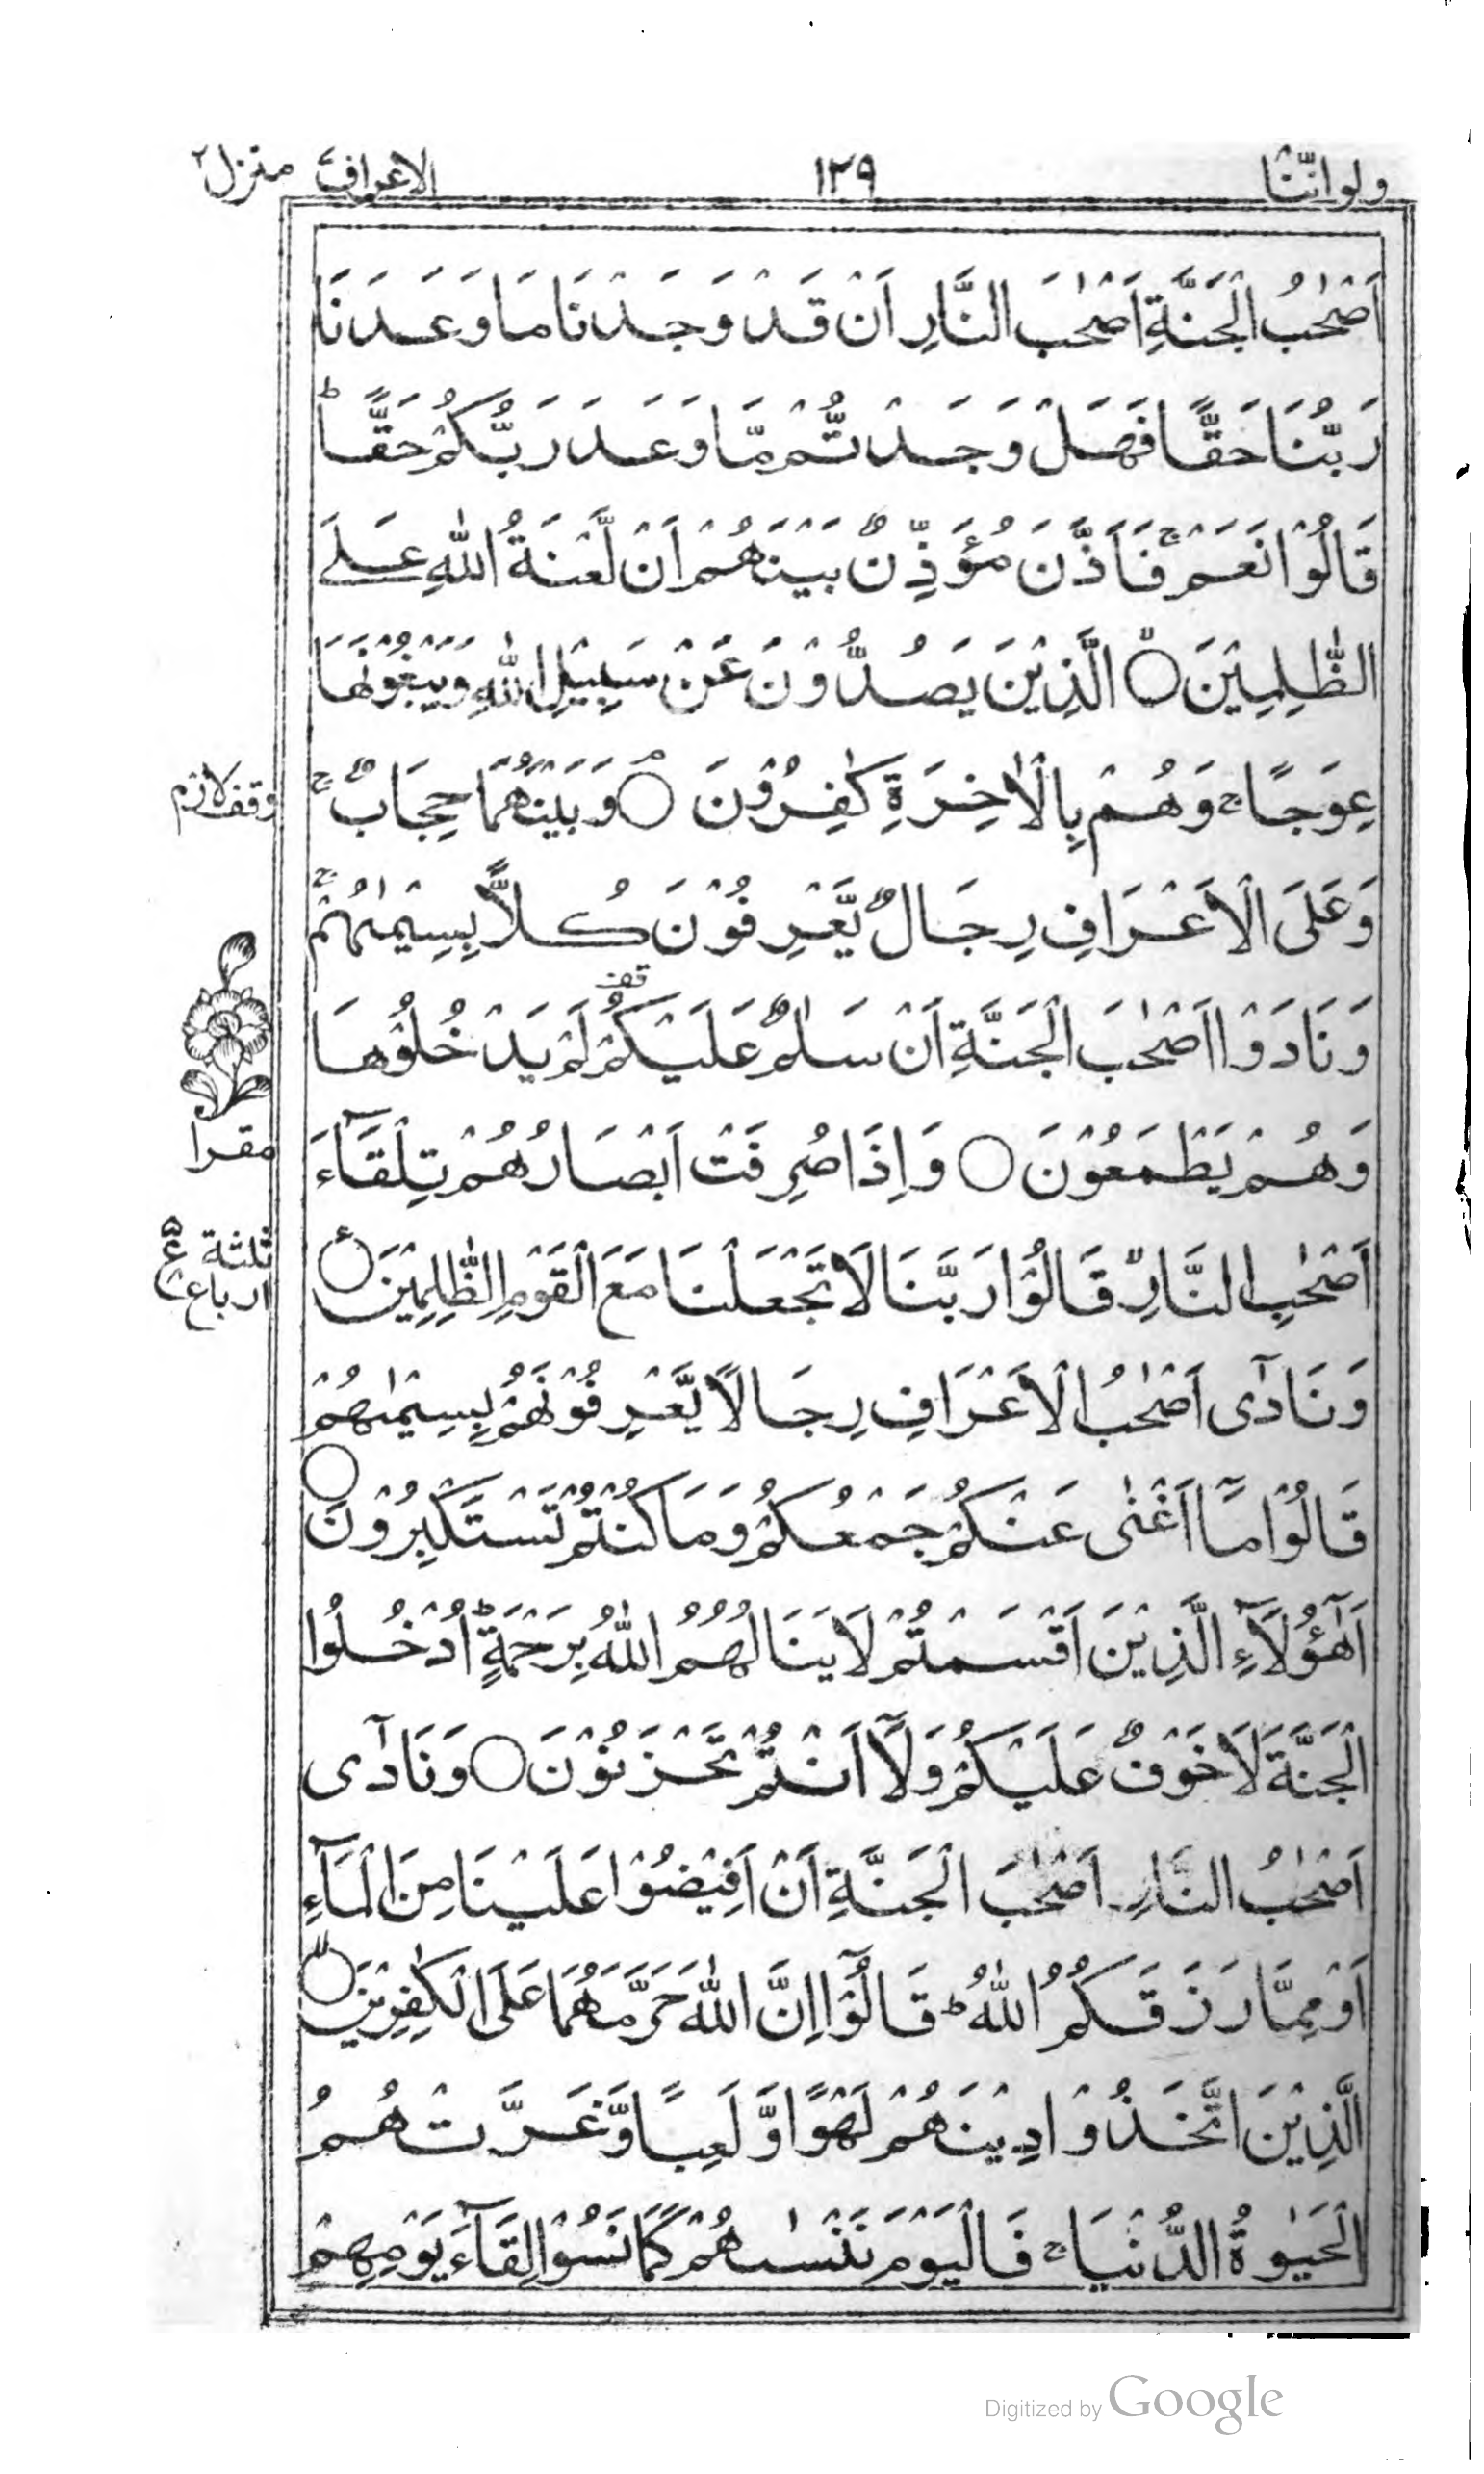 ولواننا ١٢٩ الاعراف ٧ منزل ٢
اَصْحٰبُ الْجَنَّةِ اَصْحٰبَ النَّارِ اَنْ قَدْ وَجَدْنَا مَا وَعَدَنَا
رَبُّنَا حَقًّا فَهَلْ وَجَدْتُّمْ مَّا وَعَدَ رَبُّكُمْ حَقًّا ؕ
قَالُوْا نَعَمْ ۚ فَاَذَّنَ مُؤَذِّنٌۢ بَيْنَهُمْ اَنْ لَّعْنَةُ اللّٰهِ عَلَى
الظّٰلِمِيْنَ ۙ○ الَّذِيْنَ يَصُدُّوْنَ عَنْ سَبِيْلِ اللّٰهِ وَيَبْغُوْنَهَا
عِوَجًا ۚ وَهُمْ بِالْاٰخِرَةِ كٰفِرُوْنَ ۘ○ وَبَيْنَهُمَا حِجَابٌ ۚ
وقف لازم
وَعَلَى الْاَعْرَافِ رِجَالٌ يَّعْرِفُوْنَ كُلًّاۢ بِسِيْمٰىهُمْ ۚ
وَنَادَوْا اَصْحٰبَ الْجَنَّةِ اَنْ سَلٰمٌ عَلَيْكُمْ قف لَمْ يَدْخُلُوْهَا
وَهُمْ يَطْمَعُوْنَ ○ وَاِذَا صُرِفَتْ اَبْصَارُهُمْ تِلْقَآءَ
مقرا
اَصْحٰبِ النَّارِ ۙ قَالُوْا رَبَّنَا لَا تَجْعَلْنَا مَعَ الْقَوْمِ الظّٰلِمِيْنَ ○ ع
ثلثة ارباع ٥ ع ٨
وَنَادٰٓى اَصْحٰبُ الْاَعْرَافِ رِجَالًا يَّعْرِفُوْنَهُمْ بِسِيْمٰىهُمْ
قَالُوْا مَآ اَغْنٰى عَنْكُمْ جَمْعُكُمْ وَمَا كُنْتُمْ تَسْتَكْبِرُوْنَ ○
اَهٰٓؤُلَآءِ الَّذِيْنَ اَقْسَمْتُمْ لَا يَنَالُهُمُ اللّٰهُ بِرَحْمَةٍ ؕ اُدْخُلُوا
الْجَنَّةَ لَا خَوْفٌ عَلَيْكُمْ وَلَآ اَنْتُمْ تَحْزَنُوْنَ ○ وَنَادٰٓى
اَصْحٰبُ النَّارِ اَصْحٰبَ الْجَنَّةِ اَنْ اَفِيْضُوْا عَلَيْنَا مِنَ الْمَآءِ
اَوْ مِمَّا رَزَقَكُمُ اللّٰهُ ؕ قَالُوْٓا اِنَّ اللّٰهَ حَرَّمَهُمَا عَلَى الْكٰفِرِيْنَ ۙ○
الَّذِيْنَ اتَّخَذُوْا دِيْنَهُمْ لَهْوًا وَّلَعِبًا وَّغَرَّتْهُمُ
الْحَيٰوةُ الدُّنْيَا ۚ فَالْيَوْمَ نَنْسٰىهُمْ كَمَا نَسُوْا لِقَآءَ يَوْمِهِمْ
Digitized by Google